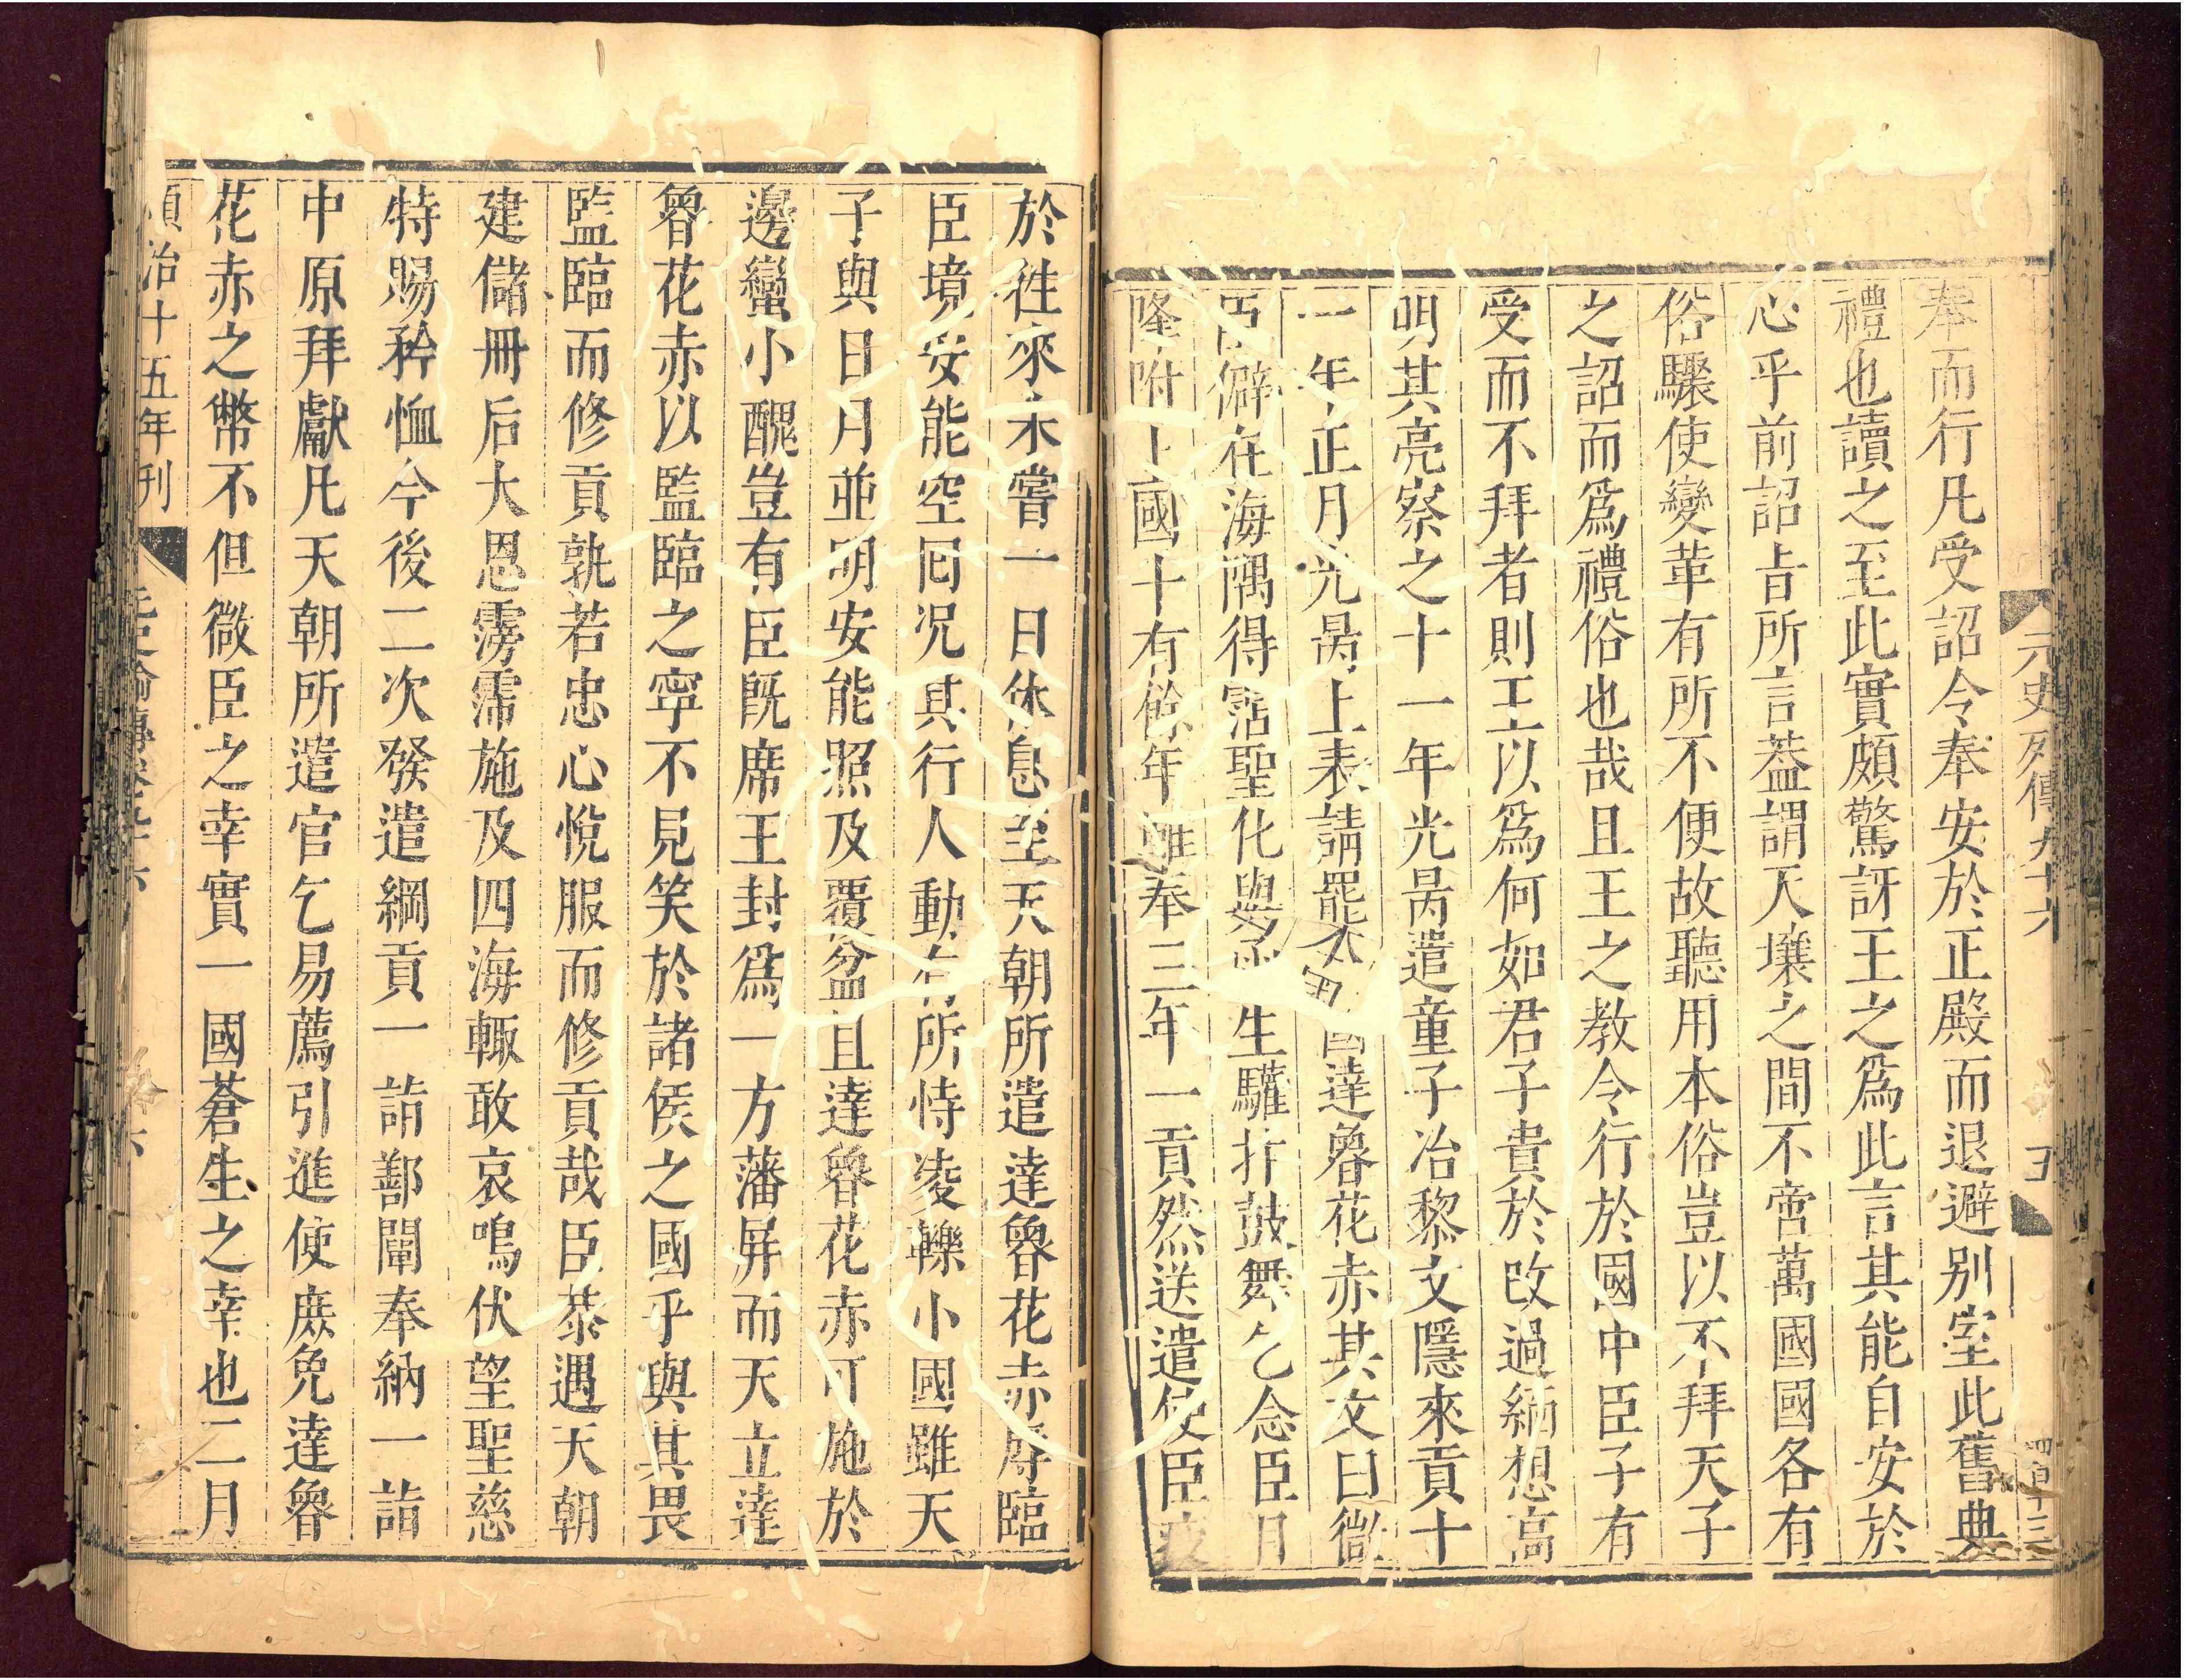 元史列傳九十六
四百十三
奉而行凡受詔令奉安於正殿而退避别室此舊典
禮也讀之至此實頗驚訝王之爲此言其能自安於
心乎前詔旨所言葢謂天壤之間不啻萬國國各有
俗驟使變革有所不便故聽用本俗豈以不拜天子
之詔而爲禮俗也哉且王之教令行於國中臣子有
受而不拜者則王以爲何如君子貴於改過緬想高
明其亮察之十一年光昺遣童子冶黎文隱來貢十
一年正月光昺上表請罷本國達魯花赤其文曰微
臣僻在海隅得霑聖化與生驩抃鼓舞乞念臣自
降附上國十有餘年雖奉三年一貢然送遣使臣疲
於徃來未嘗一日休息至天朝所遣達魯花赤辱臨
臣境安能空囘况其行人動有所恃凌轢小國雖天
子與日月並明安能照及覆盆且達魯花赤可施於
邊蠻小醜豈有臣既席王封爲一方藩屏而天立達
魯花赤以監臨之寧不見笑於諸侯之國乎與其畏
監臨而修貢孰若忠心悅服而修貢哉臣恭遇天朝
建儲冊后大恩霶霈施及四海輙敢哀鳴伏望聖慈
特賜矜恤今後二次發遣綱貢一詣鄯闡奉納一詣
中原拜獻凡天朝所遣官乞易薦引進使庶免達魯
花赤之幣不但微臣之幸實一國蒼生之幸也二月
順治十五年刊